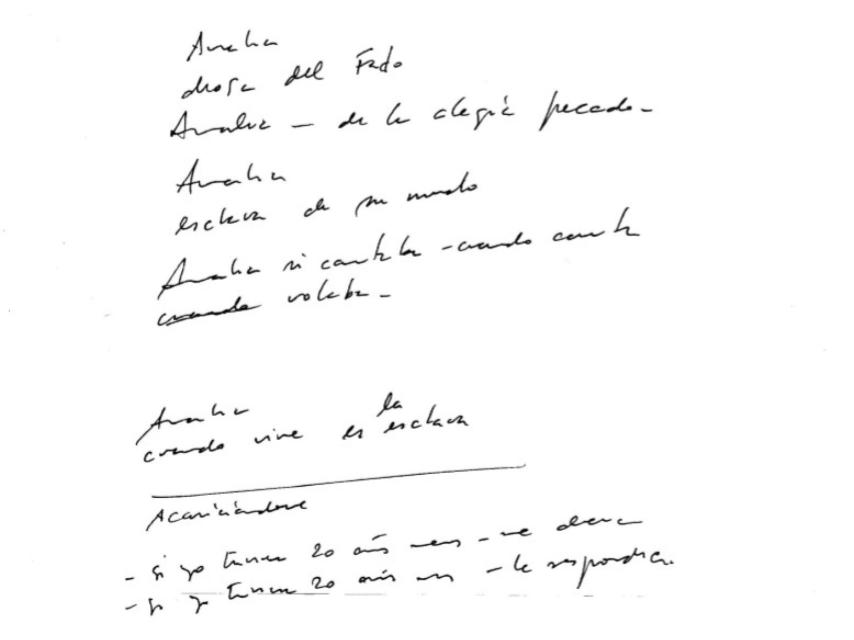 Amalia
diosa del Fado
Amalia — de la alegría pecado —
Amalia
esclava de su mundo
Amalia si cantaba - cuando canta
cuando volaba -
Amalia
cuando vive es la esclava
Acariciándome
- si yo tuviera 20 años menos - me decía
- si yo tuviera 20 años más - le respondía.